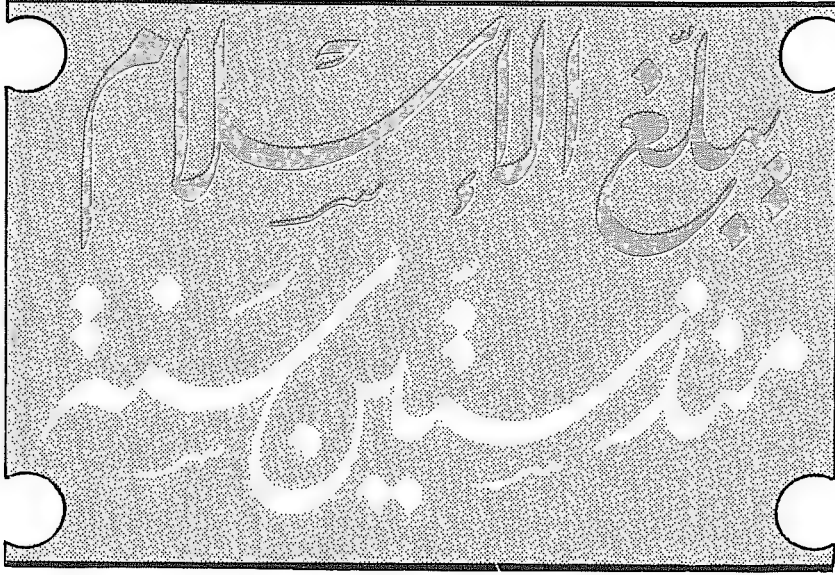 يبلّغ الإسلام
منذ ستين سنة